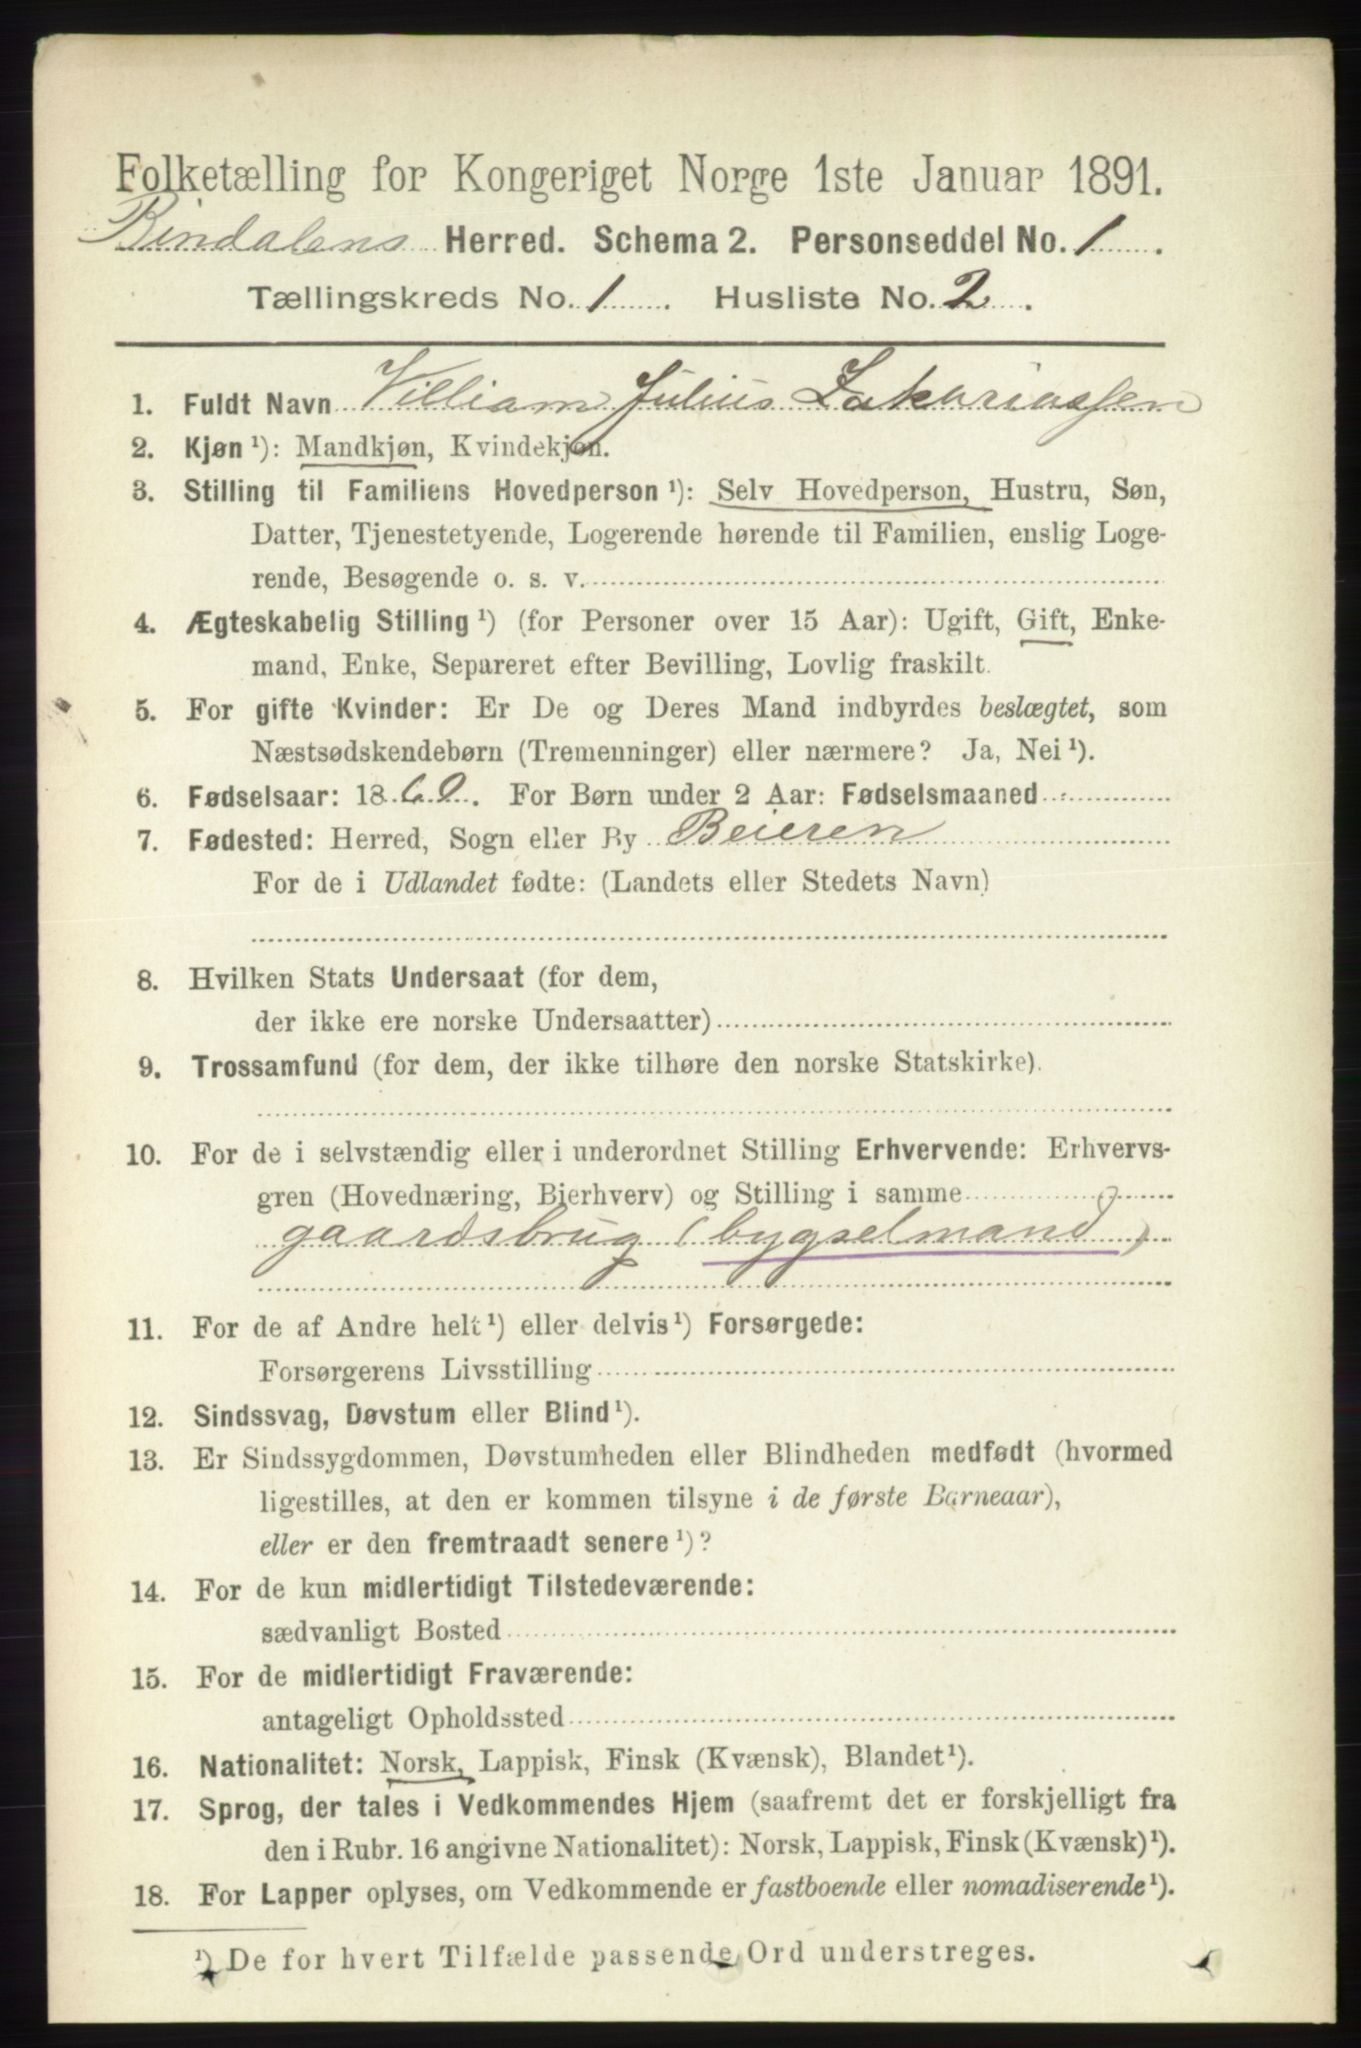 Folketælling for Kongeriget Norge 1ste Januar 1891.
Bindalens Herred. Schema 2. Personseddel No. 1.
Tællingskreds No. 1. Husliste No. 2.
1. Fuldt Navn Villiam Julius Zakariassen
2. Kjøn ¹): Mandkjøn, Kvindekjøn.
3. Stilling til Familiens Hovedperson ¹): Selv Hovedperson, Hustru, Søn,
Datter, Tjenestetyende, Logerende hørende til Familien, enslig Loge-
rende, Besøgende o. s. v.
4. Ægteskabelig Stilling ¹) (for Personer over 15 Aar): Ugift, Gift, Enke-
mand, Enke, Separeret efter Bevilling, Lovlig fraskilt.
5. For gifte Kvinder: Er De og Deres Mand indbyrdes beslægtet, som
Næstsødskendebørn (Tremenninger) eller nærmere? Ja, Nei ¹).
6. Fødselsaar: 1860. For Børn under 2 Aar: Fødselsmaaned
7. Fødested: Herred, Sogn eller By Beieren
For de i Udlandet fødte: (Landets eller Stedets Navn)
8. Hvilken Stats Undersaat (for dem,
der ikke ere norske Undersaatter)
9. Trossamfund (for dem, der ikke tilhøre den norske Statskirke).
10. For de i selvstændig eller i underordnet Stilling Erhvervende: Erhvervs-
gren (Hovednæring, Bierhverv) og Stilling i samme
gaardsbrug (bygselmand)
11. For de af Andre helt ¹) eller delvis ¹) Forsørgede:
Forsørgerens Livsstilling
12. Sindssvag, Døvstum eller Blind ¹).
13. Er Sindssygdommen, Døvstumheden eller Blindheden medfødt (hvormed
ligestilles, at den er kommen tilsyne i de første Barneaar),
eller er den fremtraadt senere ¹)?
14. For de kun midlertidigt Tilstedeværende:
sædvanligt Bosted
15. For de midlertidigt Fraværende:
antageligt Opholdssted
16. Nationalitet: Norsk, Lappisk, Finsk (Kvænsk), Blandet ¹).
17. Sprog, der tales i Vedkommendes Hjem (saafremt det er forskjelligt fra
den i Rubr. 16 angivne Nationalitet): Norsk, Lappisk, Finsk (Kvænsk) ¹).
18. For Lapper oplyses, om Vedkommende er fastboende eller nomadiserende ¹).
¹) De for hvert Tilfælde passende Ord understreges.